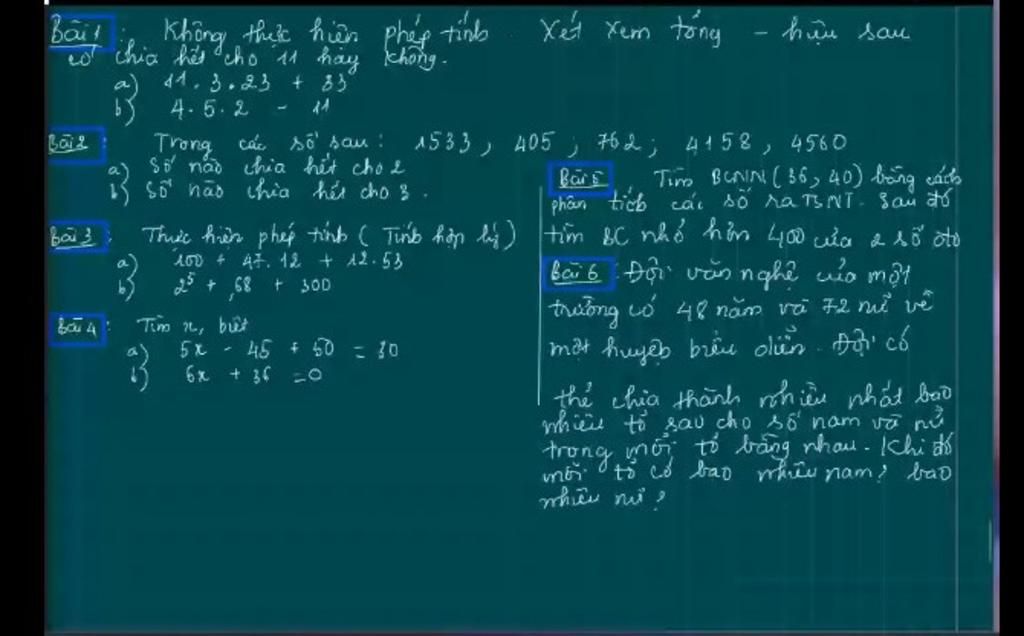 Bài 1: Không thực hiện phép tính. Xét xem tổng - hiệu sau
có chia hết cho 11 hay không.
a) 11.3.23 + 33
b) 4.5.2 - 11
Bài 2: Trong các số sau: 1533, 405; 762; 4158, 4560
a) Số nào chia hết cho 2
b) Số nào chia hết cho 3.
Bài 3: Thực hiện phép tính (Tính hợp lý)
a) 100 + 47.12 + 12.53
b) 2⁵ + 68 + 300
Bài 4: Tìm x, biết
a) 5x - 45 + 50 = 30
b) 6x + 36 = 0
Bài 5 Tìm BCNN(36, 40) bằng cách
phân tích các số ra TSNT. Sau đó
tìm BC nhỏ hơn 400 của 2 số đó
Bài 6. Đội văn nghệ của một
trường có 48 nam và 72 nữ về
một huyện biểu diễn. Đội có
thể chia thành nhiều nhất bao
nhiêu tổ sao cho số nam và nữ
trong mỗi tổ bằng nhau. Khi đó
mỗi tổ có bao nhiêu nam? bao
nhiêu nữ?